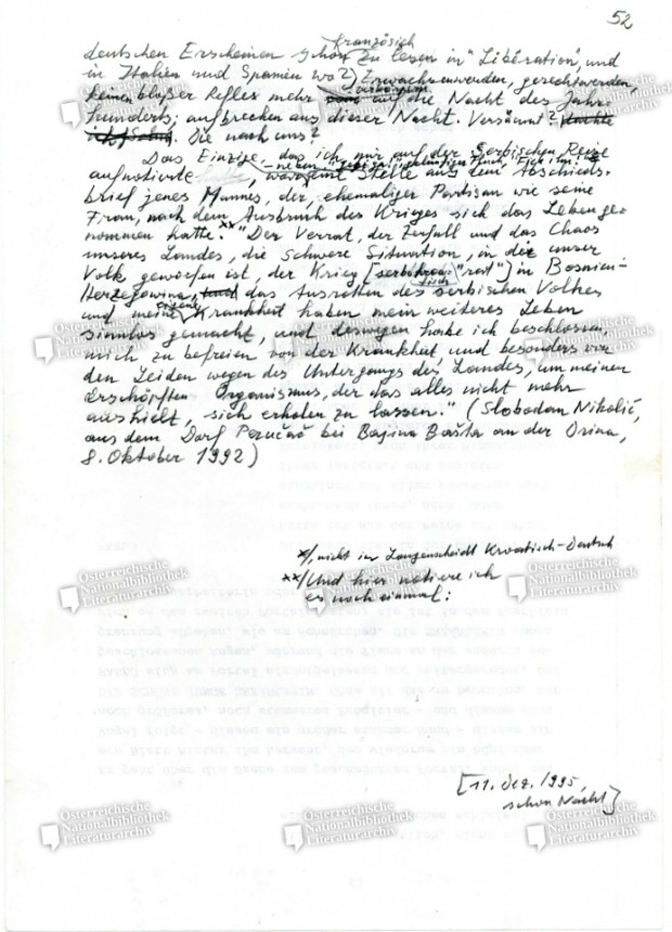 52
französisch
deutschen Erscheinen schon zu lesen in "Libération", und
in Italien und Spanien wo?) Erwachsenwerden, gerechtwerden,
keinen bloßer Reflex mehr auf die Nacht des Jahr-
hunderts; aufbrechen aus dieser Nacht. Versäumt?
Die nach uns?
Das Einzige, das ich mir auf der serbischen Reise
aufnotierte, neben
war eine Stelle aus dem Abschieds-
brief jenes Mannes, der, ehemaliger Partisan wie seine
Frau, nach dem Ausbruch des Krieges sich das Leben ge-
nommen hatte. xx) "Der Verrat, der Zerfall und das Chaos
unseres Landes, die schwere Situation, in die unser
Volk geworfen ist, der Krieg [serbokroatisch "rat"] in Bosnien-
Herzegowina, das Ausrotten des serbischen Volkes
und meine eigene Krankheit haben mein weiteres Leben
sinnlos gemacht, und deswegen habe ich beschlossen,
mich zu befreien von der Krankheit, und besonders von
den Leiden wegen des Untergangs des Landes, um meinen
erschöpften Organismus, der das alles nicht mehr
aushielt, sich erholen zu lassen." (Slobodan Nikolić,
aus dem Dorf Perućac bei Bajina Bašta an der Drina,
8. Oktober 1992)
x/, nicht im Langenscheidt Kroatisch-Deutsch
xx/ Und hier notiere ich
es noch einmal:
[11. Dez. 1995,
schon Nacht]
Österreichische
Nationalbibliothek
Literaturarchiv